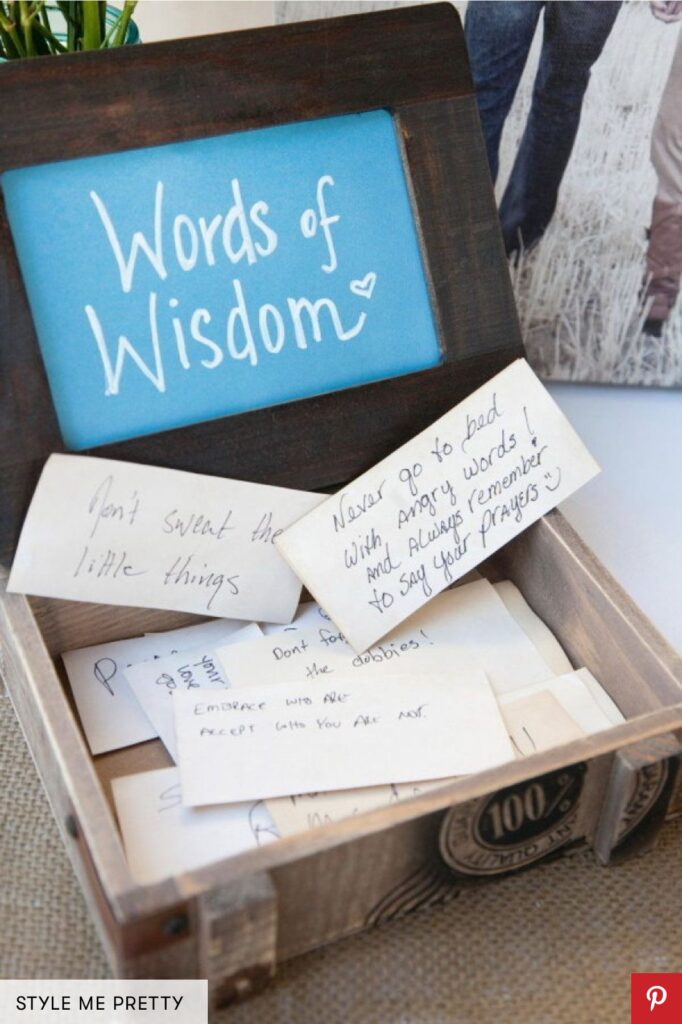 Words of
Wisdom
Don't sweat the
little things
Never go to bed
with angry words!
and always remember
to say your prayers
your
love
Dont
the dobbies!
EMBRACE WHO ARE
ACCEPT WHO YOU ARE NOT.
100%
QUALITY
STYLE ME PRETTY